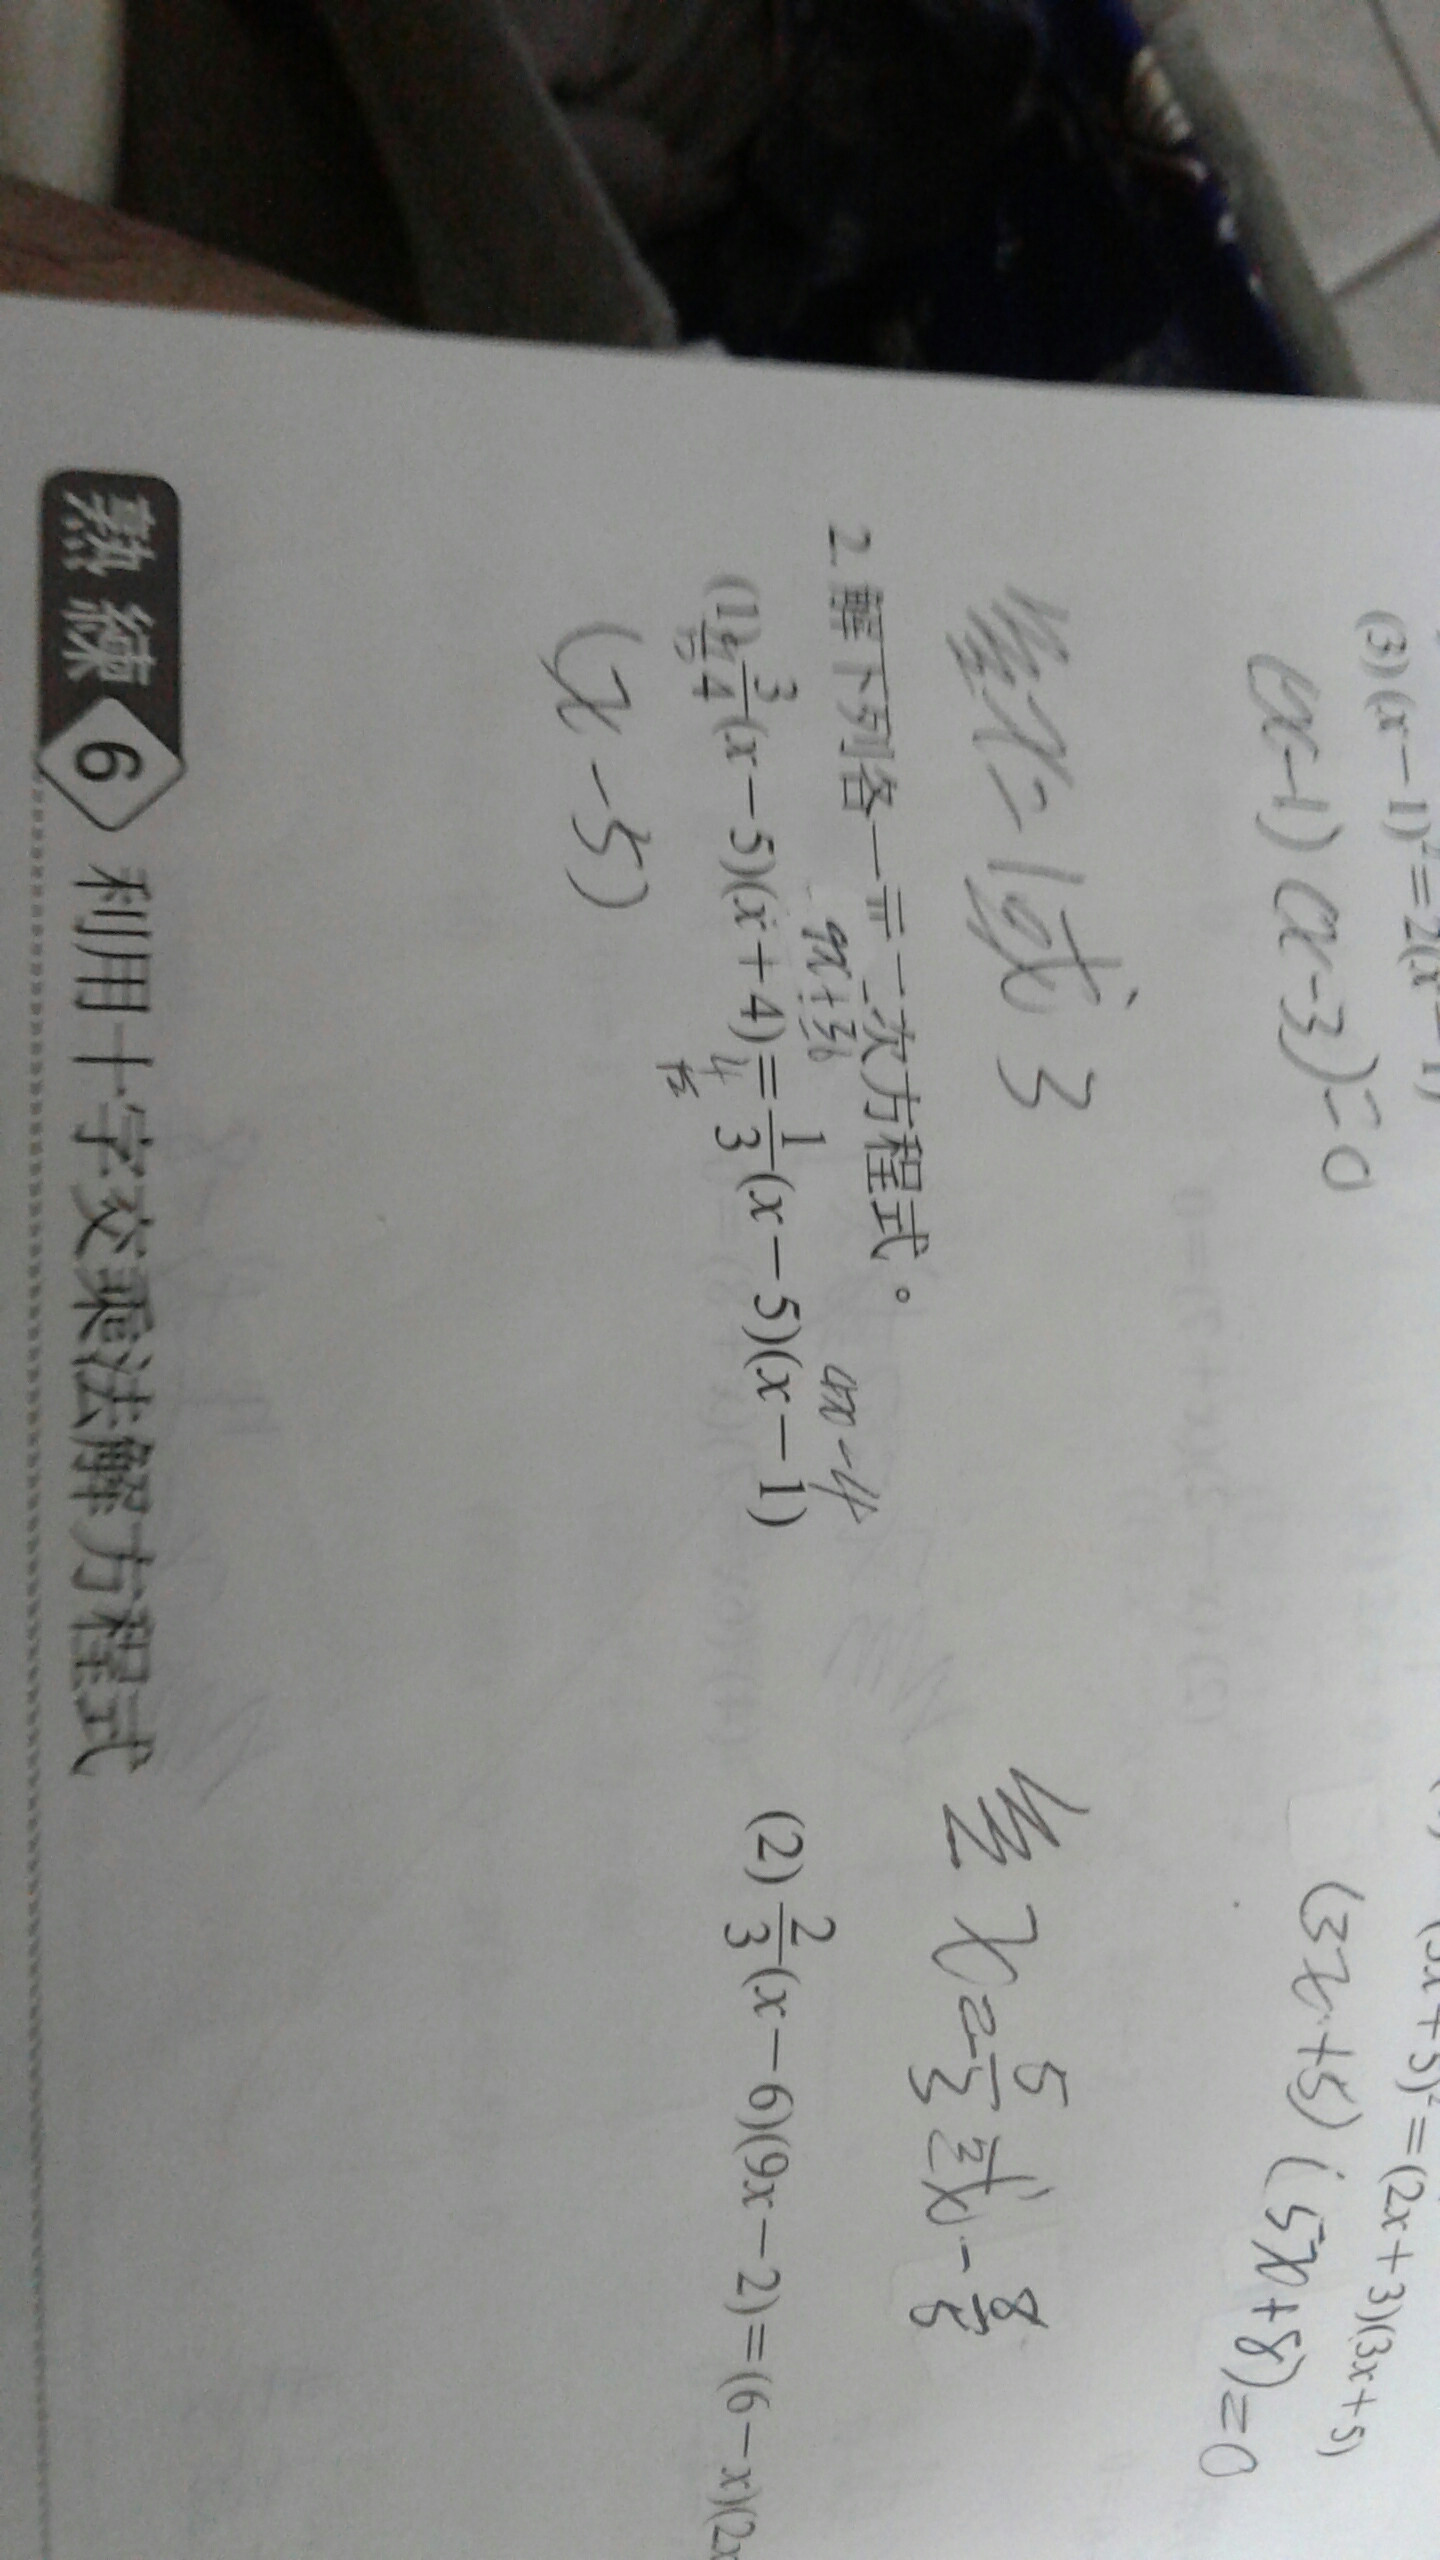 (3) (x－1)²＝2(x－1)
(x-1)(x-3)=0
x=1或3
(3x+5)²＝(2x＋3)(3x＋5)
(3x+5)(5x+8)=0
x=-5/3或-8/5
2.解下列各一元二次方程式。
9x+36
4x-4
(1) 3/4(x－5)(x＋4)＝1/3(x－5)(x－1)
12
(x-5)
(2) 2/3(x－6)(9x－2)＝(6－x)(2x
熟練 6 利用十字交乘法解方程式